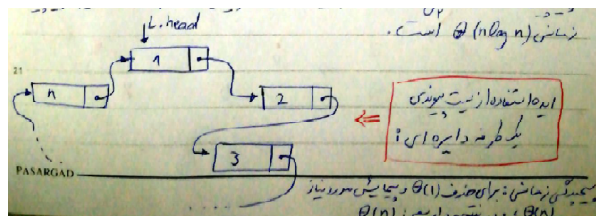 زمانی Θ(n log n) است.
L.head
1
21
n
2
ایده استفاده از لیست پیوندی
یک طرفه دایره ای :
3
PASARGAD
پیچیدگی زمانی: برای حذف Θ(1) و پیمایش مورد نیاز
Θ(n)
Θ(n)